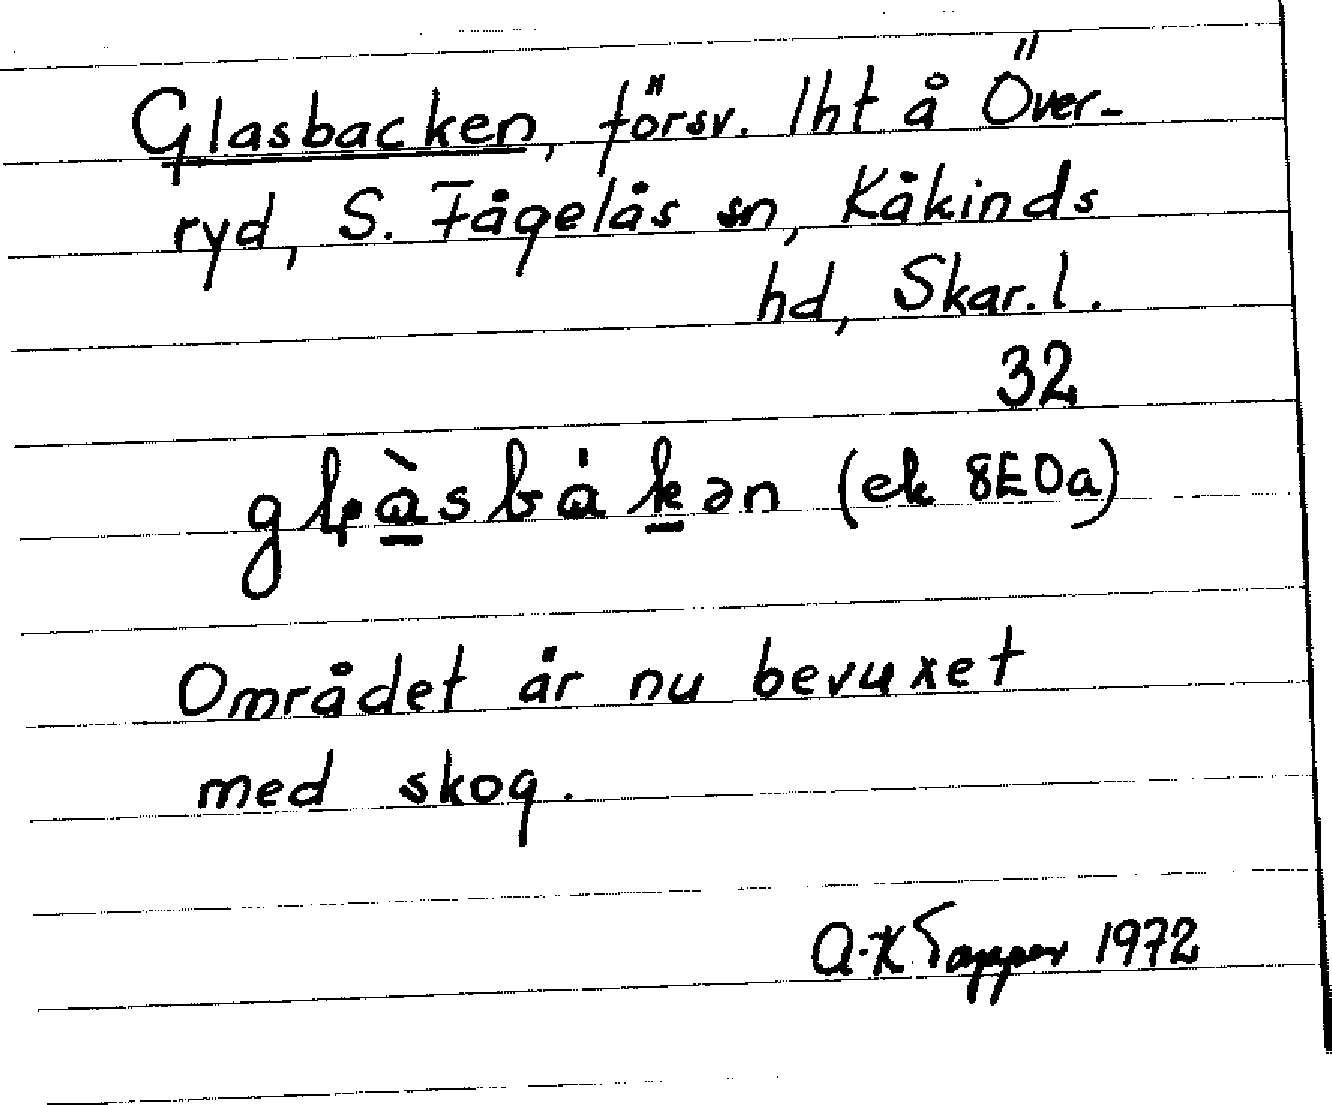 Glasbacken, försv. lht å Över-
ryd, S. Fågelås sn, Kåkinds
hd, Skar. l.
32
(ek 8E0a)
Området är nu bevuxet
med skog.
A-K Tapper 1972